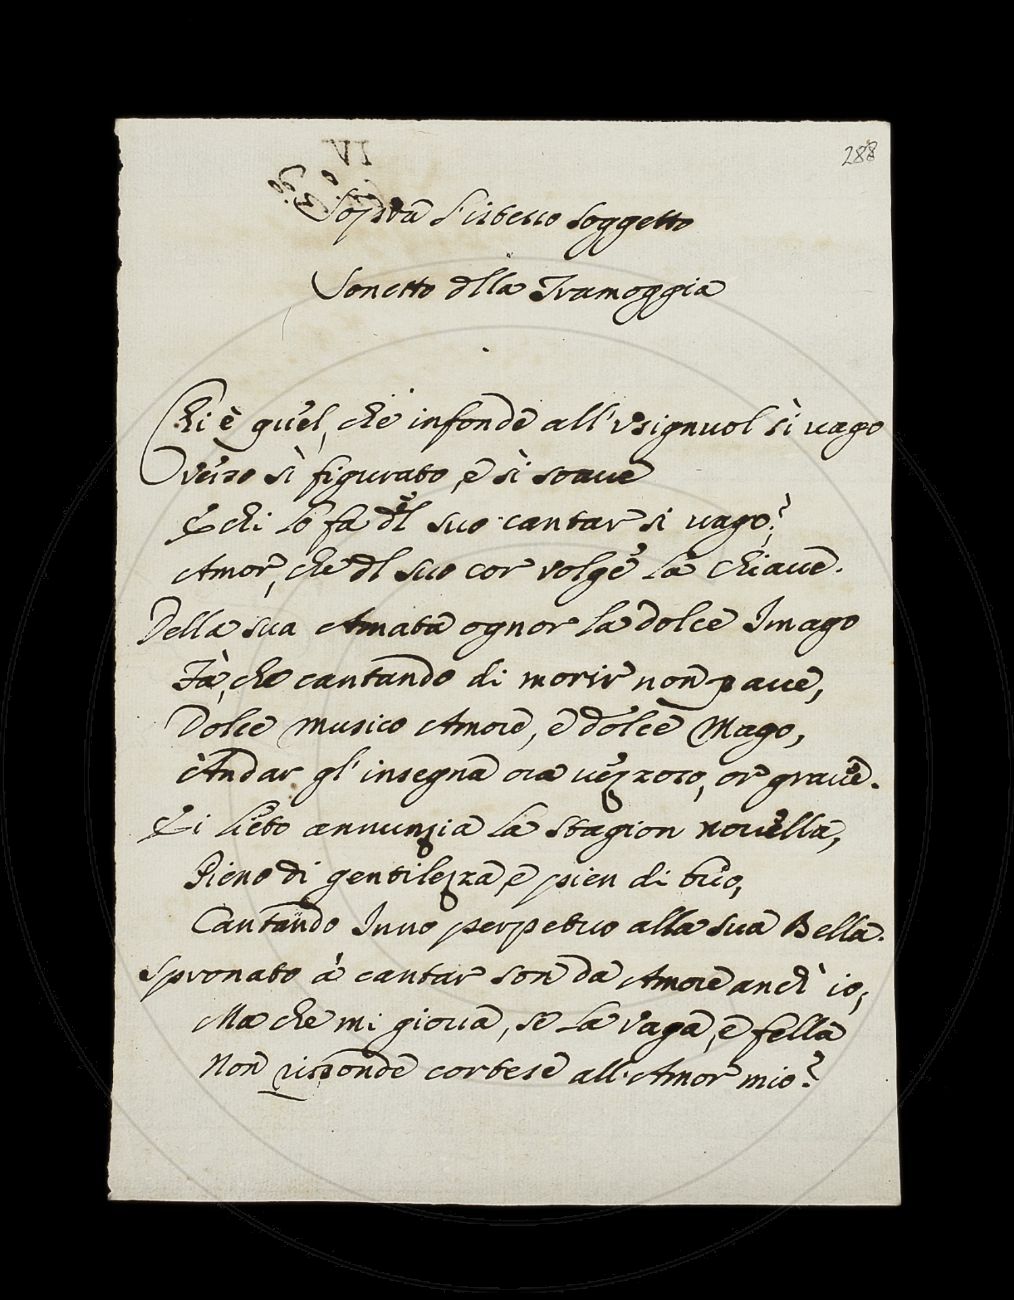 288
Sopra l'istesso soggetto
Sonetto dlla Tramoggia
Chi è quel, che infonde all'Usignuol sì vago
Verso sì figurato, e sì soave
E chi lo fa dl suo cantar sì vago?
Amor, che dl suo cor volge la chiave.
Della sua Amata ognor la dolce Imago
Fà, che cantando di morir non pave,
Dolce musico Amore, e dolce Mago,
Andar gl'insegna ora vezzoso, or grave.
Ei lieto annunzia la stagion novella,
Pieno di gentilezza, e pien di brio,
Cantando Inno perpetuo alla sua Bella.
Spronato à cantar son da Amore anch'io,
Ma che mi giova, se la vaga, e fella
Non risponde cortese all'Amor mio?